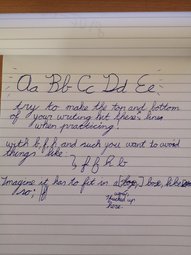 Aa Bb Cc Dd Ee
try to make the top and bottom
of your writing hit these lines
when practicing!
with b, f, h, and such you want to avoid
things like
f f h b
Imagine it has to fit in a box, like
so;
here.